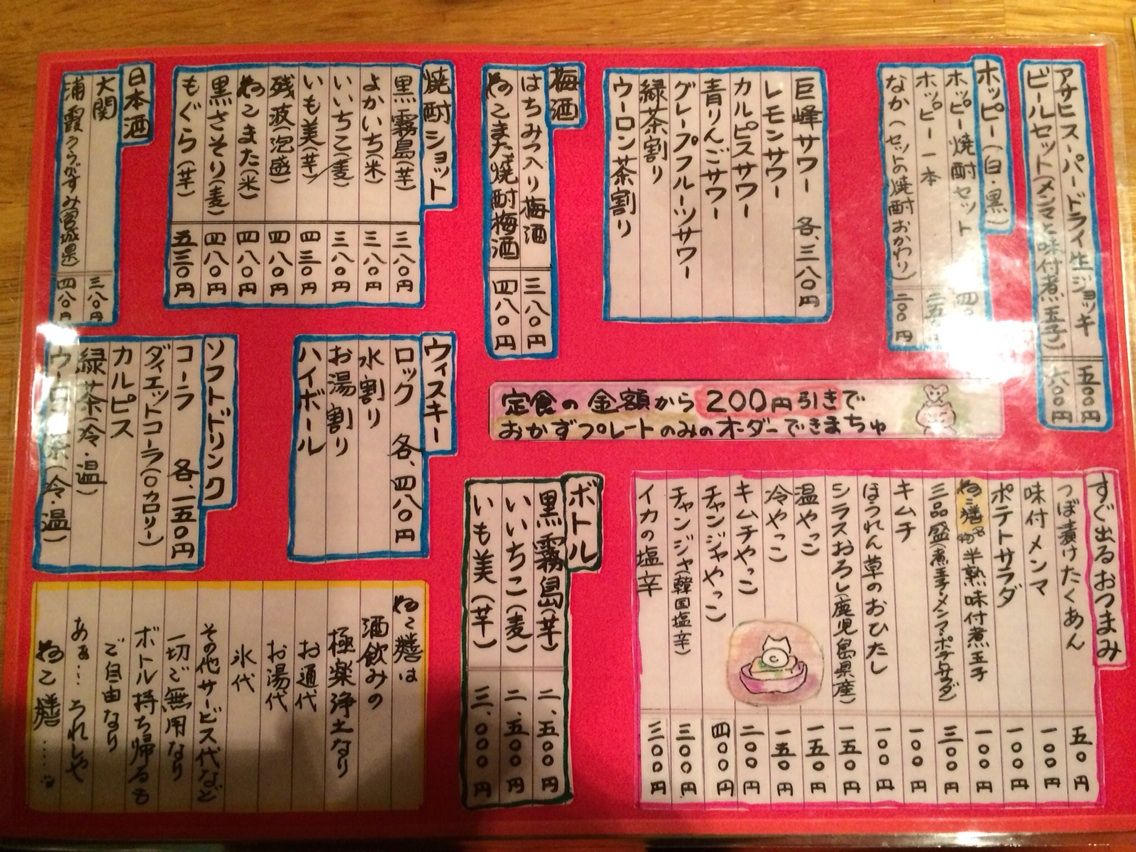 アサヒスーパードライ生ジョッキ 五〇〇円
ビールセット(メンマと味付煮玉子) 六〇〇円
ホッピー(白・黒)
ホッピー焼酎セット 四〇
ホッピー一本 二五〇
なか(セットの焼酎おかわり) 二〇〇円
巨峰サワー 各、三八〇円
レモンサワー
カルピスサワー
青りんごサワー
グレープフルーツサワー
緑茶割り
ウーロン茶割り
梅酒
はちみつ入り梅酒 三八〇円
ねこまた焼酎梅酒 四八〇円
焼酎ショット
黒霧島(芋) 三八〇円
よかいち(米) 三八〇円
いいちこ(麦) 三八〇円
いも美(芋) 四三〇円
残波(泡盛) 四八〇円
ねこまた(米) 四八〇円
黒さそり(麦) 四八〇円
もぐら(芋) 五三〇円
日本酒
大関 三八〇円
浦霞うらがすみ(宮城県) 四八〇円
定食の金額から200円引きで
おかずプレートのみのオーダーできまちゅ
ウィスキー
ロック 各、四八〇円
水割り
お湯割り
ハイボール
ソフトドリンク
コーラ 各、一五〇円
ダイエットコーラ(0カロリー)
カルピス
緑茶(冷・温)
ウーロン茶(冷・温)
すぐ出るおつまみ
つぼ漬けたくあん 五〇円
味付メンマ 一〇〇円
ポテトサラダ 一〇〇円
ねこ膳名物半熟味付煮玉子 一〇〇円
三品盛(煮玉子・メンマ・ポテトサラダ) 三〇〇円
キムチ 一〇〇円
ほうれん草のおひたし 一〇〇円
シラスおろし(鹿児島県産) 一五〇円
温やっこ 一五〇円
冷やっこ 一五〇円
キムチやっこ 二〇〇円
チャンジャやっこ 四〇〇円
チャンジャ(韓国塩辛) 三〇〇円
イカの塩辛 三〇〇円
ボトル
黒霧島(芋) 二、五〇〇円
いいちこ(麦) 二、五〇〇円
いも美(芋) 三、〇〇〇円
ねこ膳は
酒飲みの
極楽浄土なり
お通代
お湯代
氷代
その他サービス代など
一切ご無用なり
ボトル持ち帰るも
ご自由なり
あぁ…うれしや
ねこ膳……